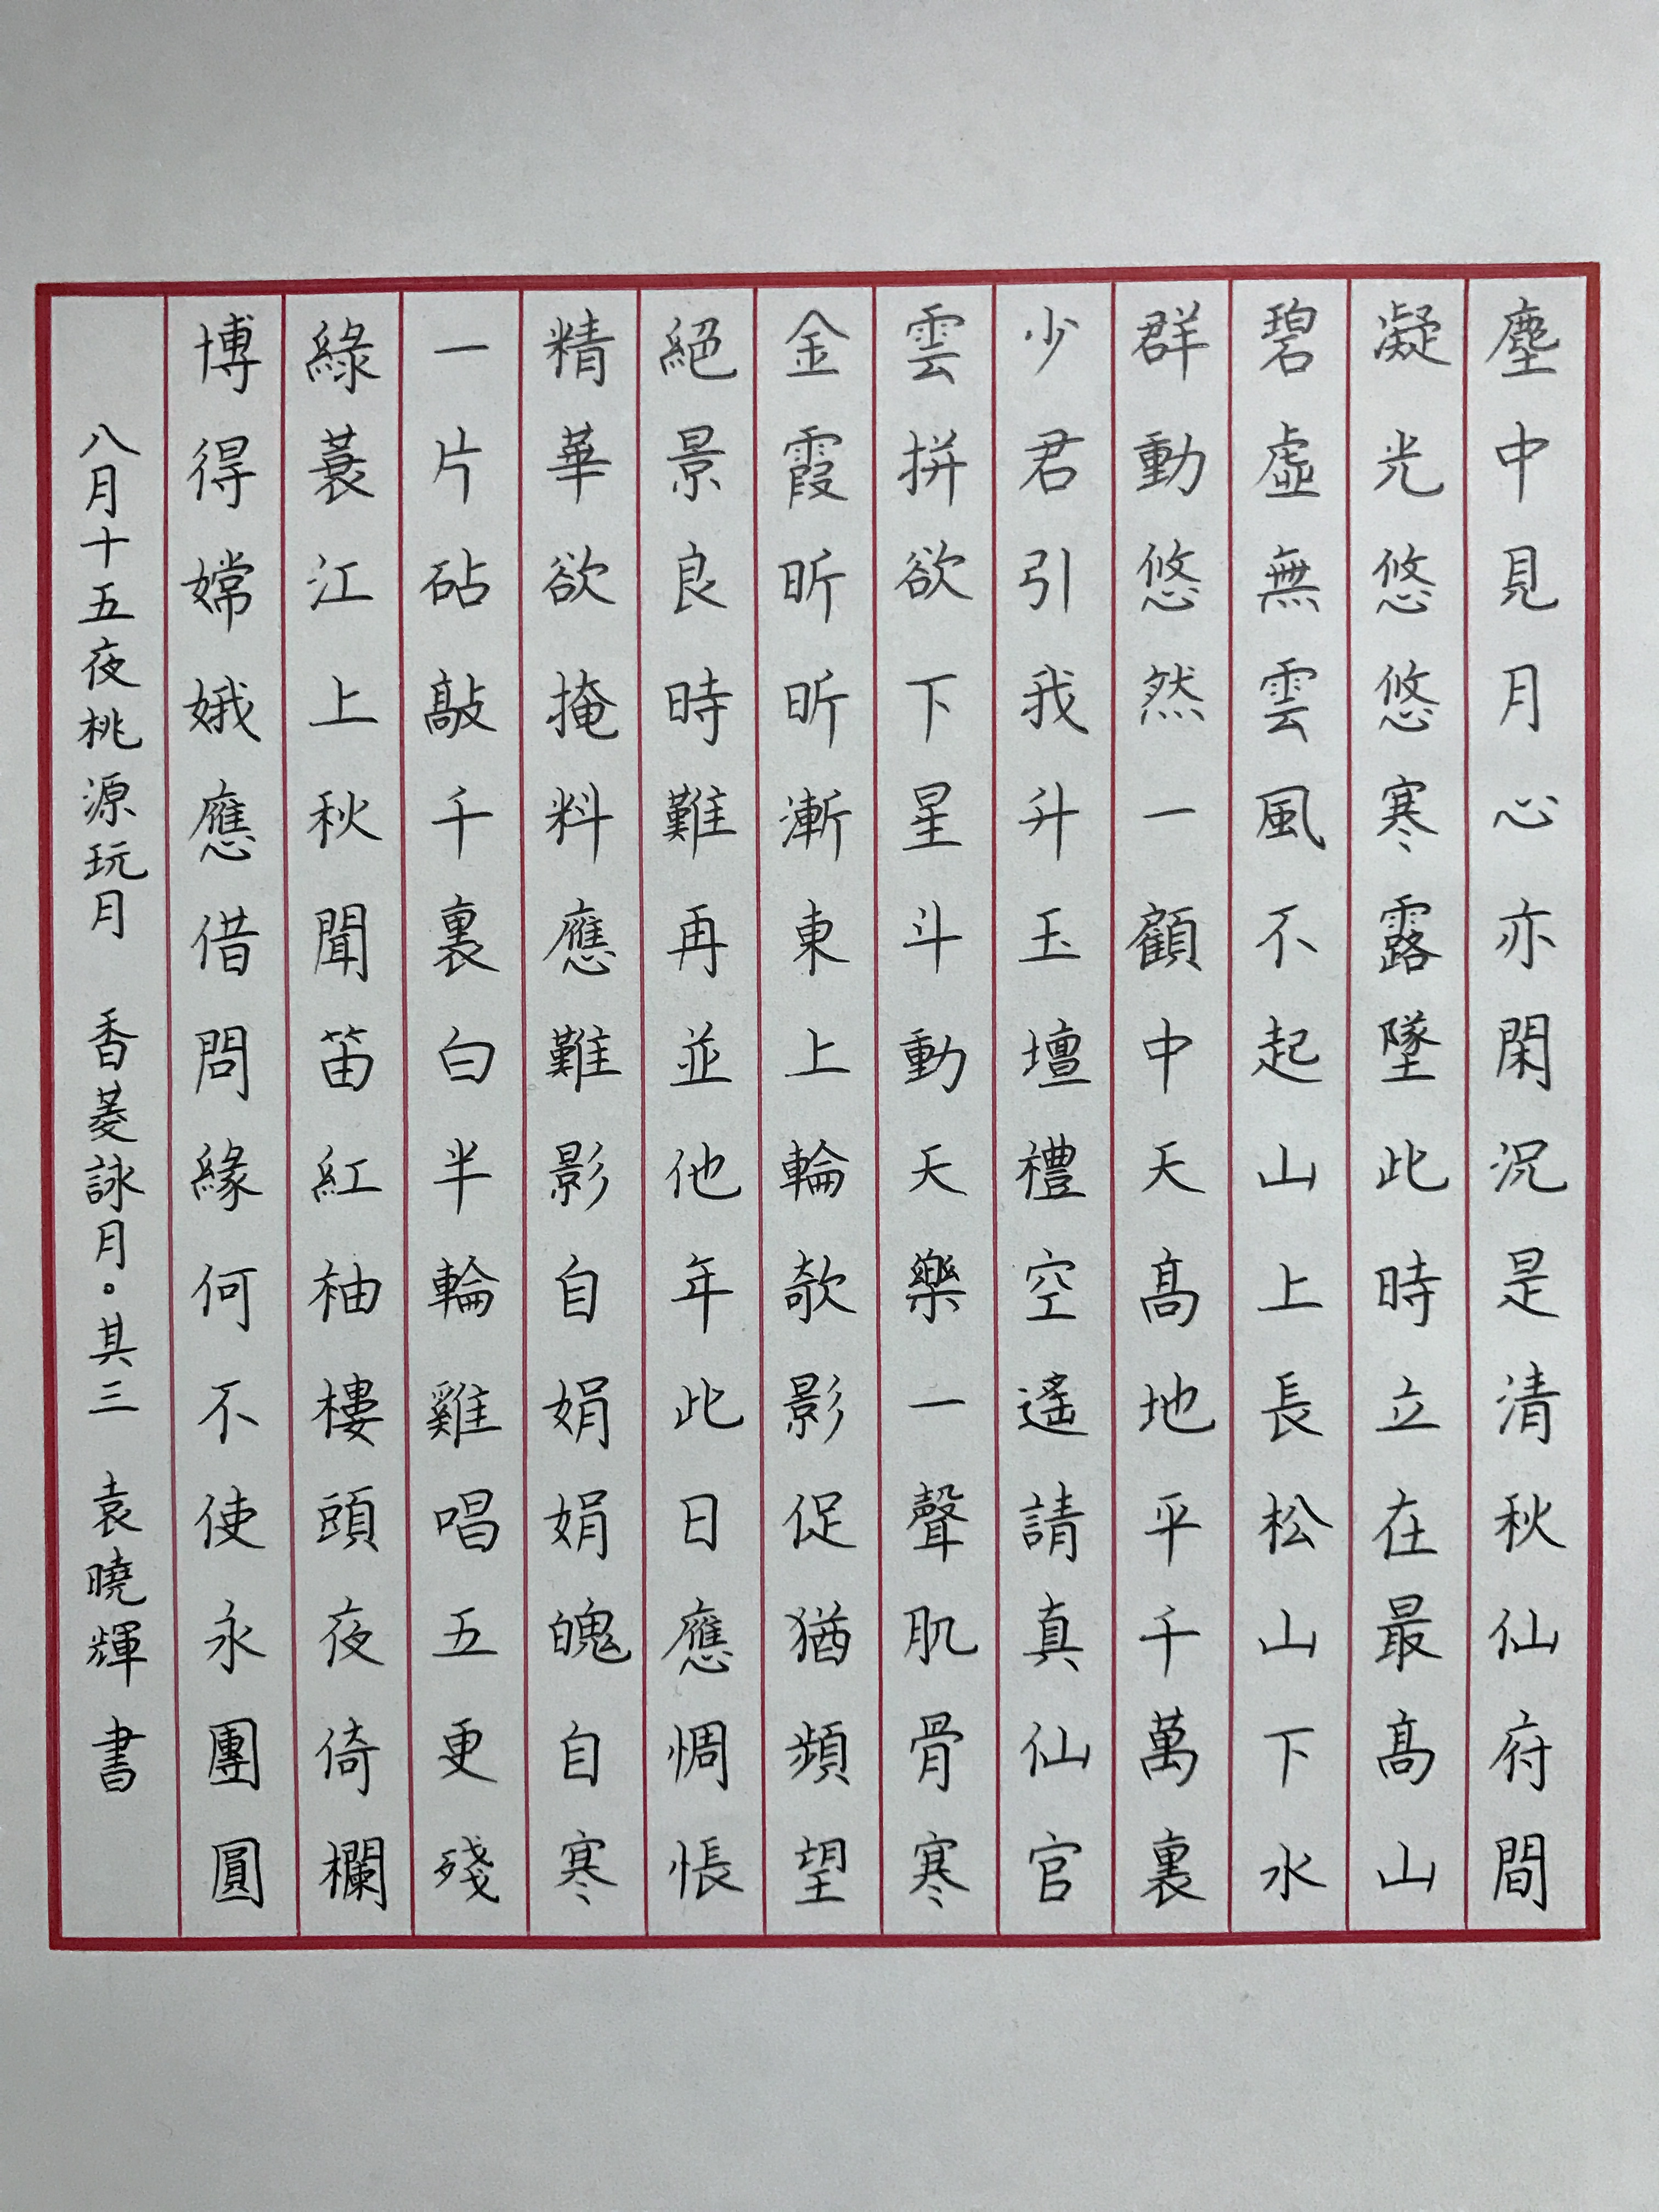 塵中見月心亦閑況是清秋仙府間
凝光悠悠寒露墜此時立在最高山
碧虛無雲風不起山上長松山下水
群動悠然一顧中天高地平千萬裏
少君引我升玉壇禮空遙請真仙官
雲拼欲下星斗動天樂一聲肌骨寒
金霞昕昕漸東上輪欹影促猶頻望
絕景良時難再並他年此日應惆悵
精華欲掩料應難影自娟娟魄自寒
一片砧敲千裏白半輪雞唱五更殘
綠蓑江上秋聞笛紅袖樓頭夜倚欄
博得嫦娥應借問緣何不使永團圓
八月十五夜桃源玩月 香菱詠月。其三 袁曉輝書